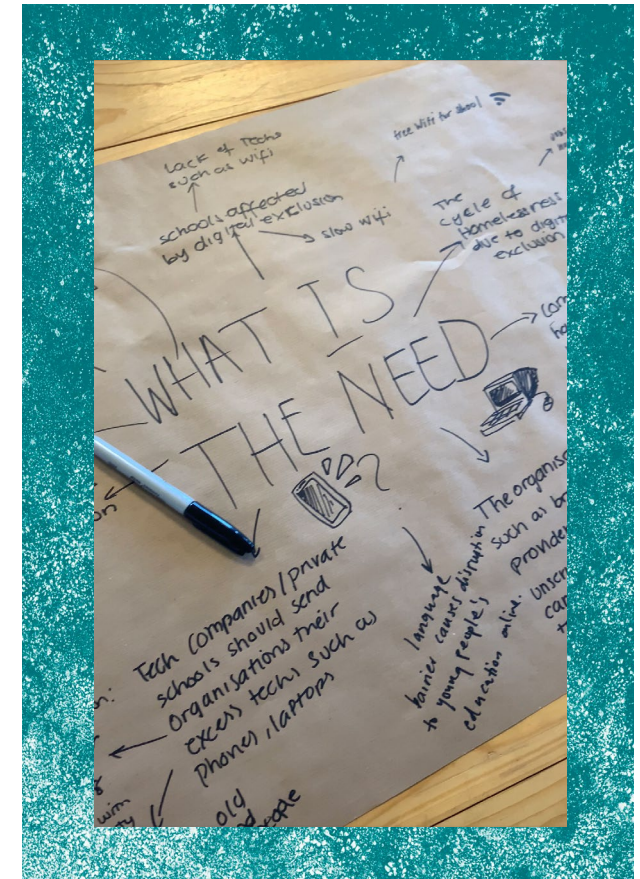 Lack of Techs
such as wifi
schools affected
by digital exclusion
slow wifi
free wifi for school
The
cycle of
homelessness
due to digit
exclusion
WHAT IS
THE NEED
?
Tech companies/private
schools should send
organisations their
excess techs such as
phones, laptops
old
language
barrier causes disruption
to young people's
education online.
The organisa
such as br
provide